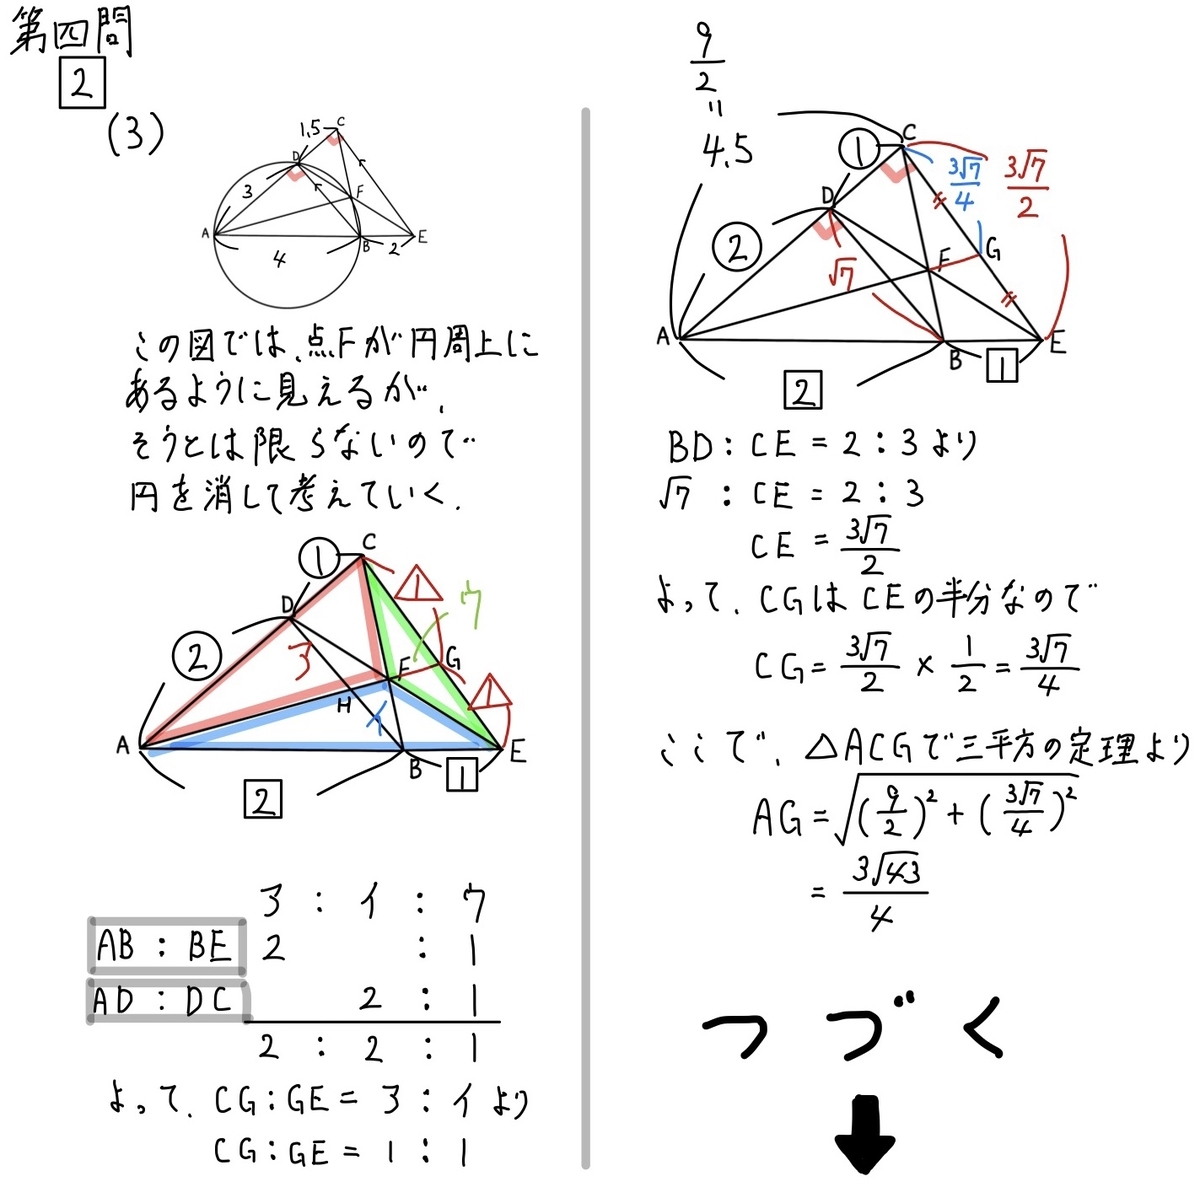 第四問
2
(3)
1.5
C
D
3
F
A
B
E
4
2
この図では、点Fが円周上に
あるように見えるが、
そうとは限らないので
円を消して考えていく.
1
C
1
ウ
D
2
ア
F
G
1
H
イ
A
B
E
2
1
ア : イ : ウ
AB : BE 2 : 1
AD : DC 2 : 1
2 : 2 : 1
よって、CG:GE = ア : イ より
CG:GE = 1 : 1
9/2
=
4.5
1
C
3√7/4
3√7/2
D
2
G
F
√7
A
B
E
2
1
BD : CE = 2 : 3 より
√7 : CE = 2 : 3
CE = 3√7/2
よって、CGはCEの半分なので
CG = 3√7/2 × 1/2 = 3√7/4
ここで、△ACGで三平方の定理より
AG = √((9/2)² + (3√7/4)²)
= 3√43/4
つづく